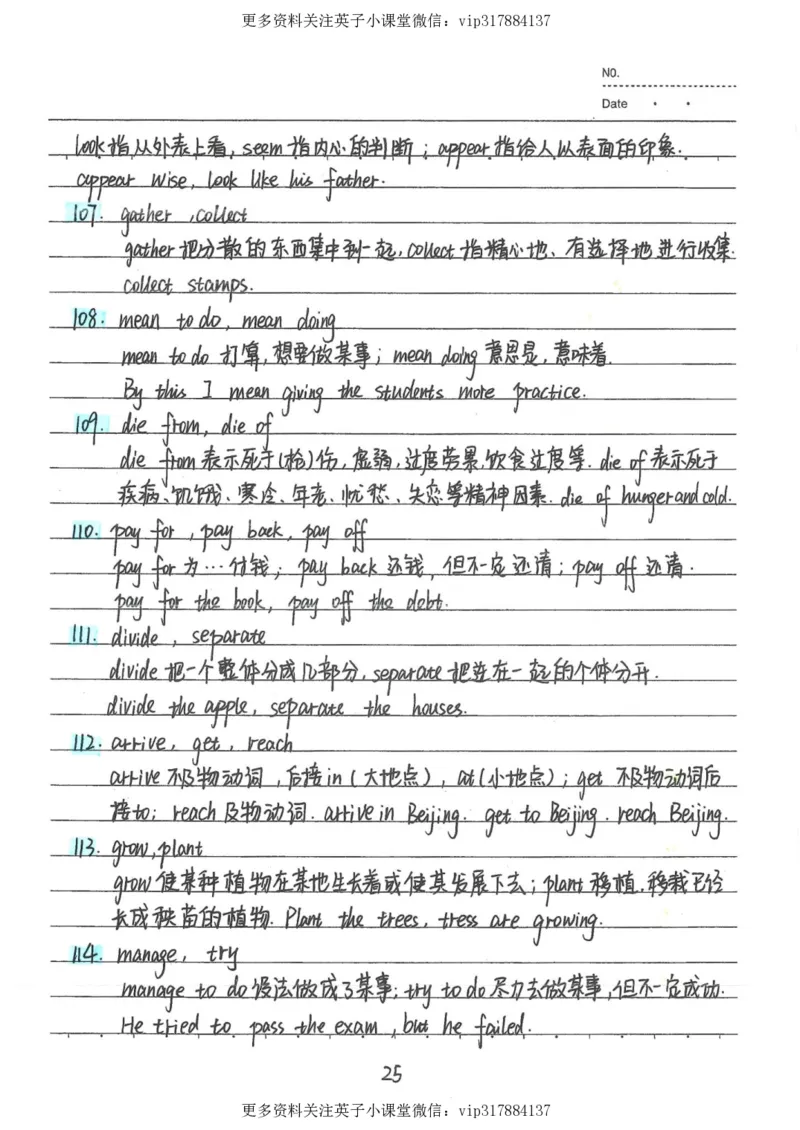 更多资料关注英子小课堂微信：vip317884137
NO.
Date
look指从外表上看，seem指内心的判断；appear指给人以表面的印象.
appear wise, look like his father.
107. gather , collect
gather把分散的东西集中到一起，collect指精心地、有选择地进行收集.
collect stamps.
108. mean to do, mean doing
mean to do 打算，想要做某事；mean doing 意思是，意味着.
By this I mean giving the students more practice.
109. die from, die of
die from表示死于(枪)伤，虚弱，过度劳累,饮食过度等. die of表示死于
疾病、饥饿、寒冷、年老、忧愁、失恋等精神因素. die of hunger and cold.
110. pay for , pay back, pay off
pay for 为…付钱；pay back 还钱，但不一定还清；pay off 还清.
pay for the book, pay off the debt.
111. divide , separate
divide 把一个整体分成几部分, separate把连在一起的个体分开.
divide the apple, separate the houses.
112. arrive, get , reach
arrive不及物动词，后接in (大地点), at(小地点)；get 不及物动词后
接to；reach及物动词. arrive in Beijing. get to Beijing. reach Beijing.
113. grow, plant
grow使某种植物在某地生长着或使其发展下去；plant移植，移栽已经
长成秧苗的植物. Plant the trees, tress are growing.
114. manage, try
manage to do设法做成了某事；try to do尽力去做某事,但不一定成功.
He tried to pass the exam, but he failed.
25
更多资料关注英子小课堂微信：vip317884137